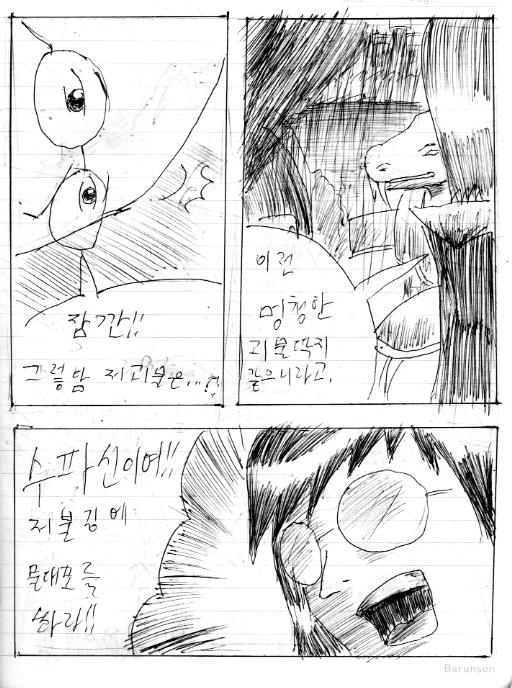 잠깐!!
그렇담 저 괴물은...!!
이런
멍청한
괴물딱지
같으니라고.
수파신이여!!
저 불길에
물대포를
쏴라!!
Barunson